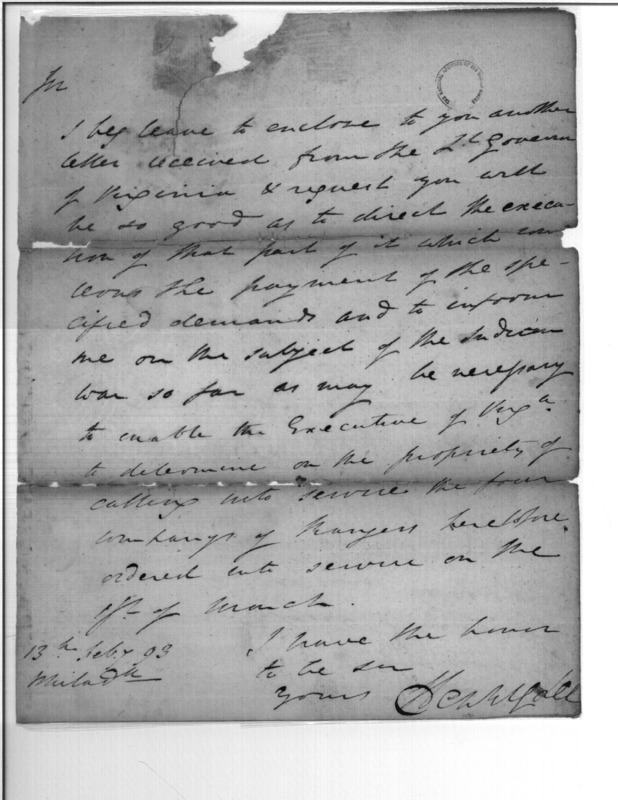 Sir
I beg leave to enclose to you another
letter received from the Lt Governor
of Virginia & request you will
be so good as to direct the execu-
tion of that part of it which con
cerns the payment of the spe-
cified demands and to inform
me on the subject of the Indian
war so far as may be necessary
to enable the Executive of Virga
to determine on the propriety of
calling into service the four
companys of Rangers heretofore
ordered into service on the
1st of March.
I have the honor
to be sir
yours Henry Lee
13th Feby 93
Philadh